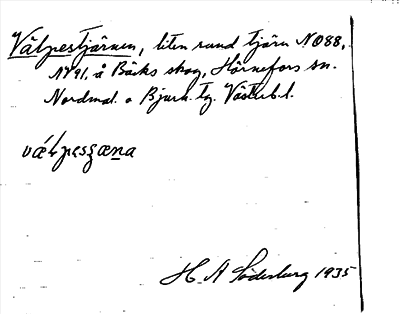 Välpestjärnen, liten rund tjärn NO88,
NV91, å Bäcks skog, Hörnefors sn.
Nordmal. o Bjurh. tg. Västerb. l.
H. A Söderburg 1935